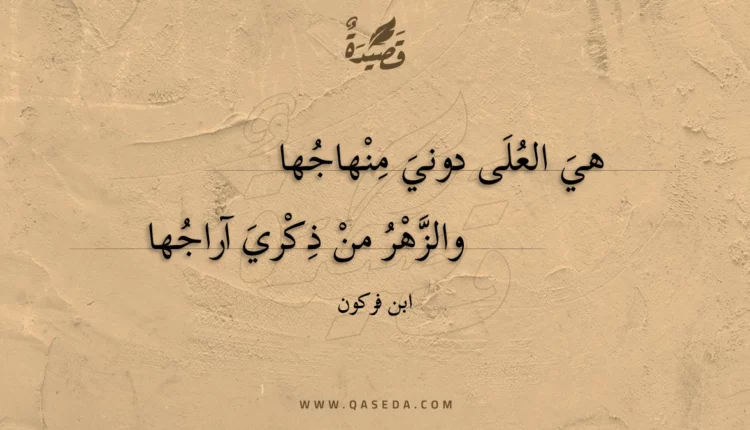 قَصِيدَةٌ
هيَ العُلَى دونيَ مِنْهاجُها
والزَّهْرُ منْ ذِكْريَ آراجُها
ابن فركون
WWW.QASEDA.COM